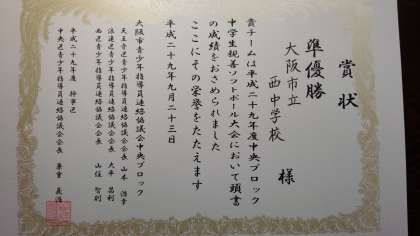 賞状
準優勝
大阪市立
西中学校
様
貴チームは平成二十九年度中央ブロック
中学生親善ソフトボール大会において頭書
の成績をおさめられました
ここにその栄誉をたたえます
平成二十九年九月二十三日
大阪市青少年指導員連絡協議会中央ブロック
天王寺区青少年指導員連絡協議会会長 山本
浪速区青少年指導員連絡協議会会長 大平 昌利
西区青少年指導員連絡協議会会長 山住
平成二十九年度 幹事区
中央区青少年指導員連絡協議会会長